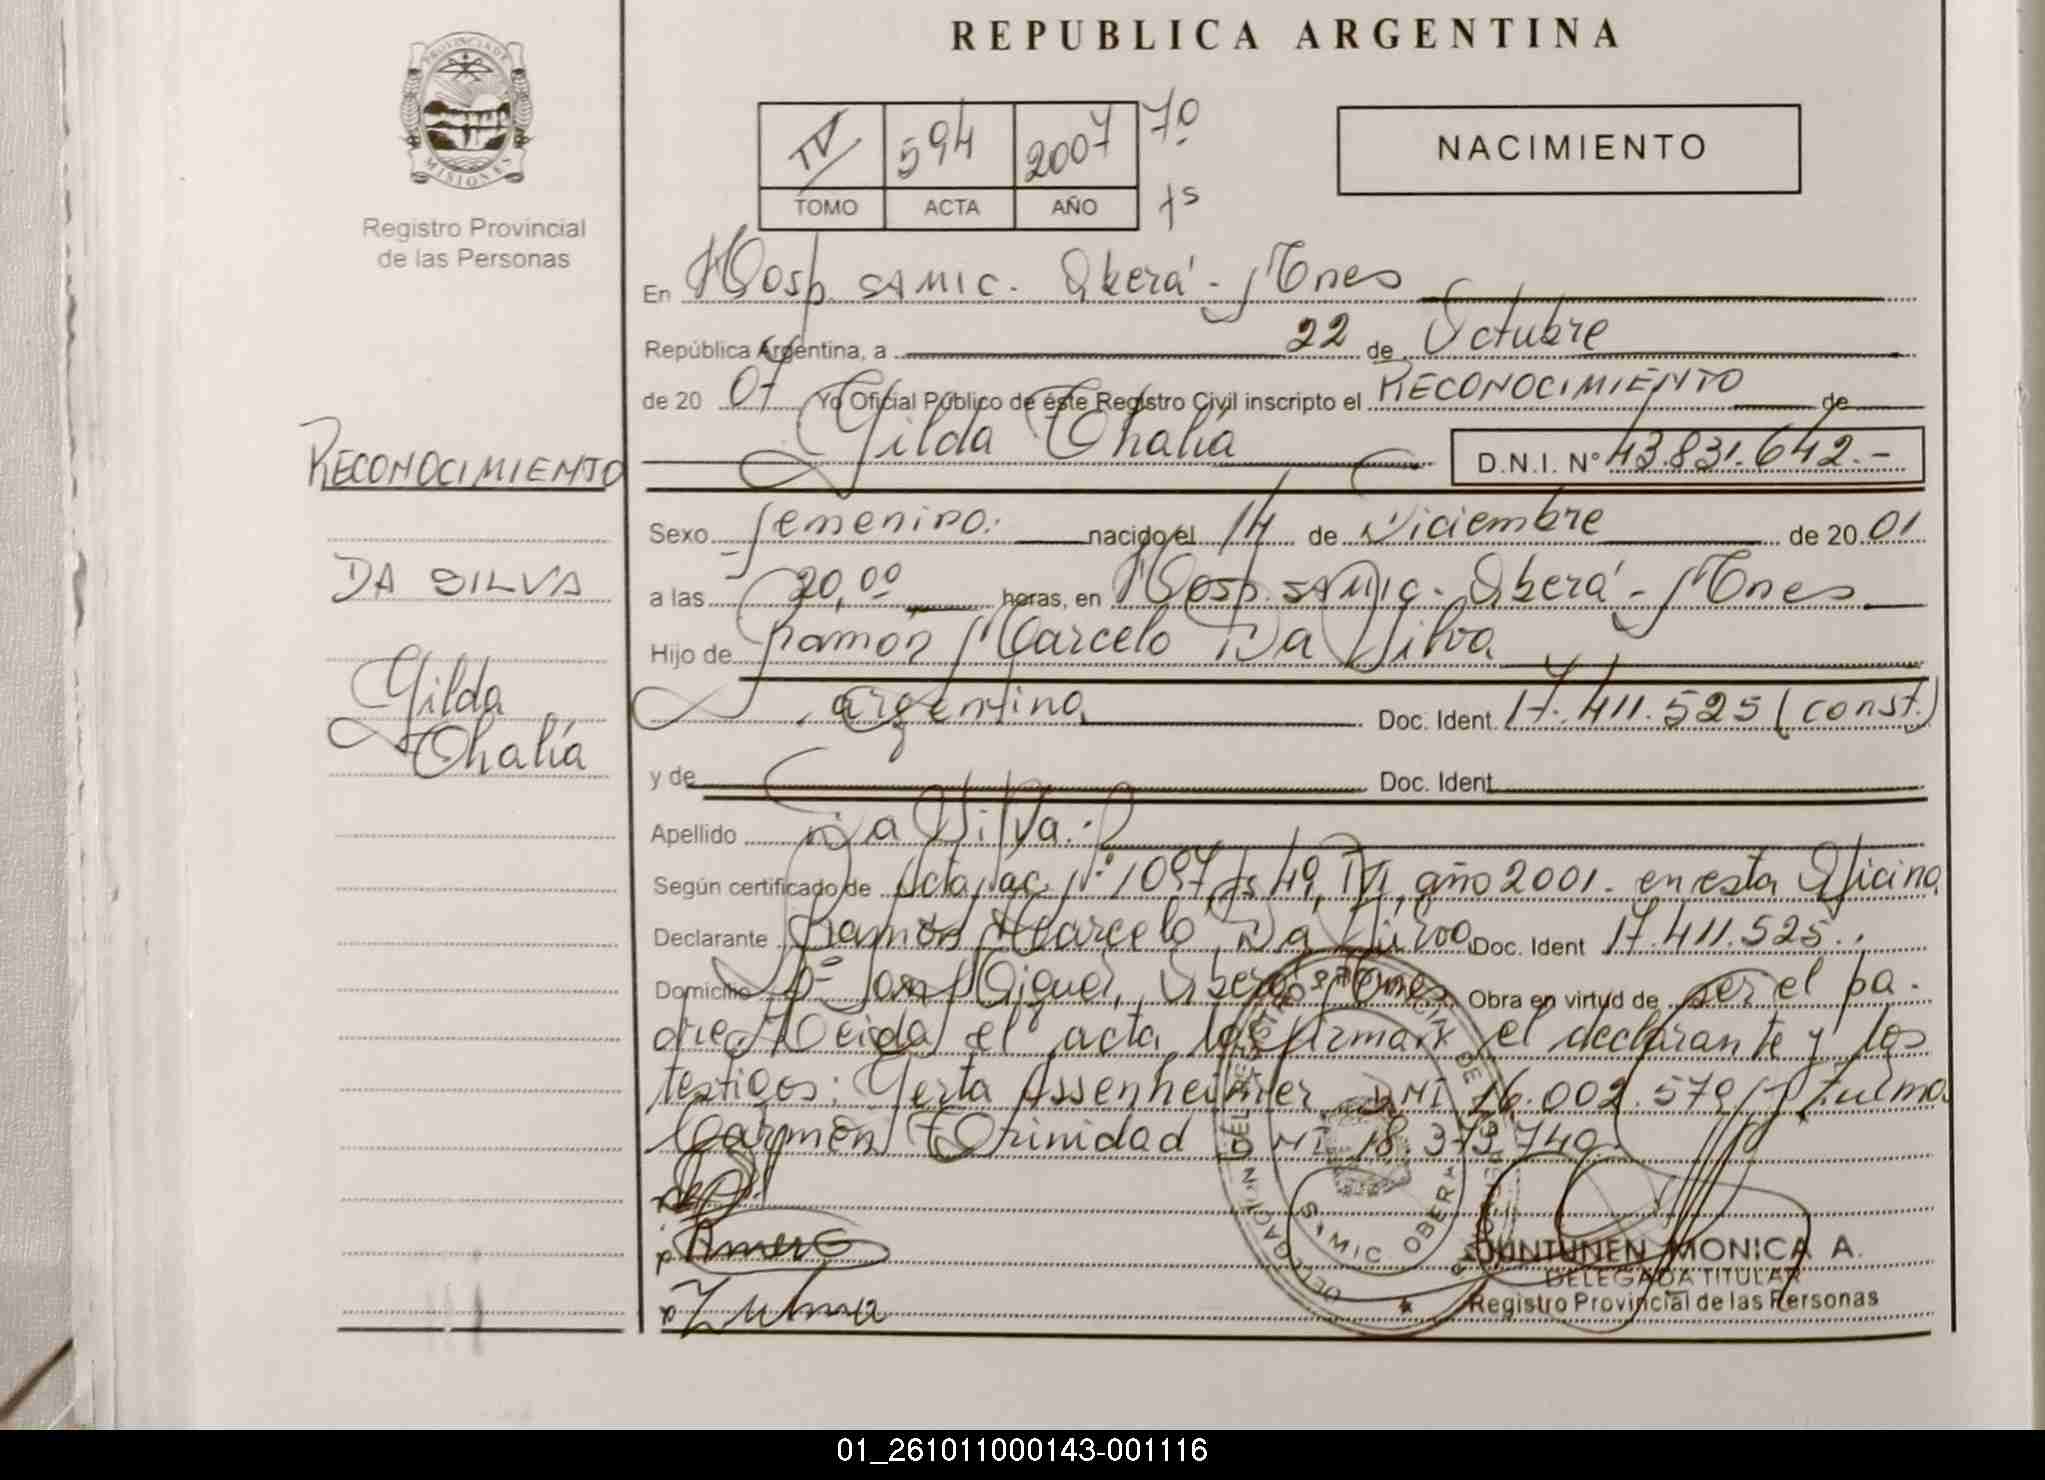 REPUBLICA ARGENTINA
PROVINCIA DE
MISIONES
Registro Provincial
de las Personas
IV 594 2007 70
TOMO ACTA AÑO fs
NACIMIENTO
En Hosp. SAMIC. Oberá - Mnes
República Argentina, a 22 de Octubre
de 20 07 Yo Oficial Público de éste Registro Civil inscripto el RECONOCIMIENTO de
Gilda Thalía D.N.I. N° 43.831.642.-
RECONOCIMIENTO
Sexo femenino. nacido el 14 de Diciembre de 20 01
DA SILVA
a las 20,00 horas, en Hosp. SAMIC. Oberá - Mnes
Hijo de Ramón Marcelo Da Silva
Gilda
Thalía
argentina Doc. Ident. 17.411.525 (const.)
y de Doc. Ident.
Apellido Da Silva.
Según certificado de Acta nac. N° 1097, fs 49, TVI, año 2001. en esta Oficina
Declarante Ramón Marcelo Da Silva Doc. Ident 17.411.525.
Domicilio B° San Miguel, Oberá, Mnes Obra en virtud de ser el pa-
dre. Leida el acta, la firman el declarante y los
testigos: Gerta Assenheimer DNI 16.002.579 y Zulma
Carmen Trinidad DNI 18.373.740.
Zulma
SAMIC OBERA
DUNTUNEN MONICA A.
DELEGADA TITULAR
Registro Provincial de las Personas
01_261011000143-001116